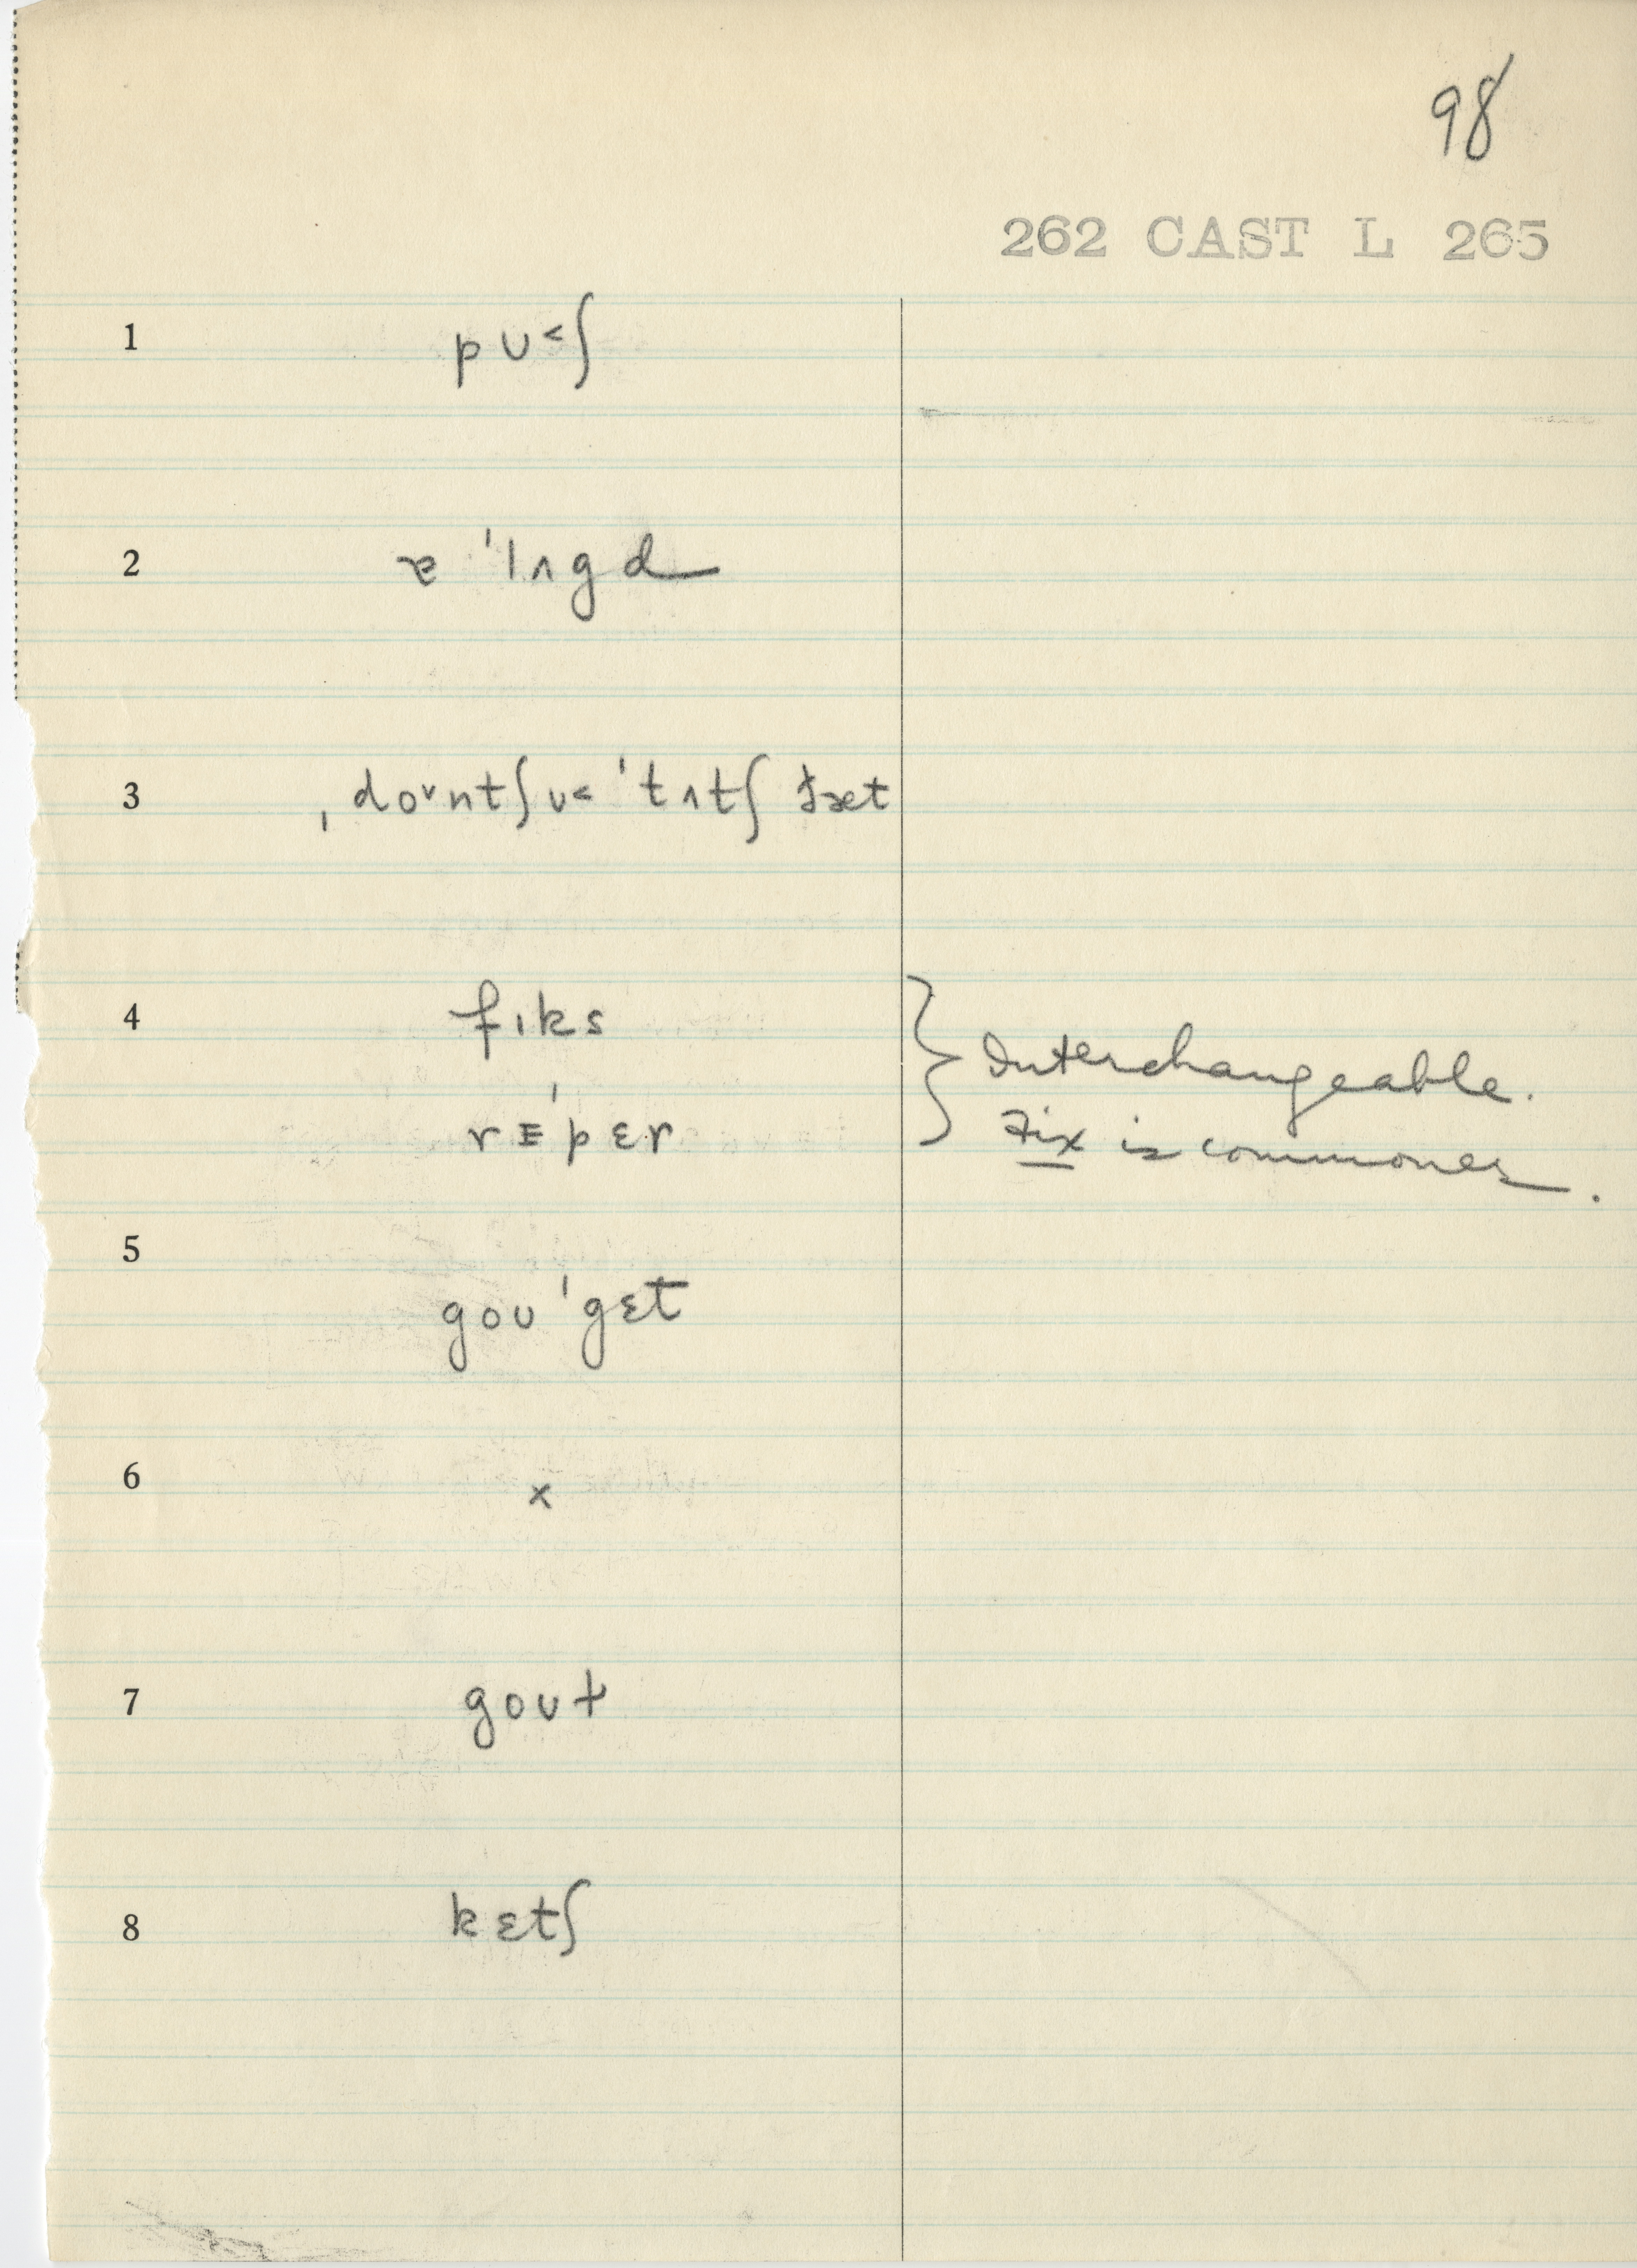 98
262 CAST L 265
1 pʊ˂ʃ
2 ɐ 'lʌgd
3 ˌdoᵛntʃʊ˂ 'tʌtʃ ðæt
4 fɪks
rɪ'pɛr
} Interchangeable.
Fix is commoner.
5 goʊ 'gɛt
6 x
7 goʊt
8 kɛtʃ